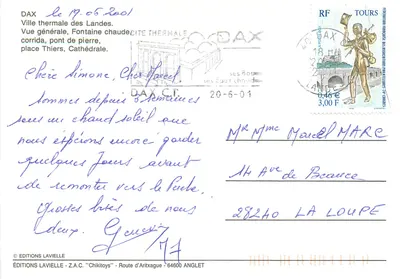 DAX
le 19.06.2001
Ville thermale des Landes.
Vue générale, Fontaine chaude,
corrida, pont de pierre,
place Thiers, Cathédrale.
CITÉ THERMALE
DAX
DAX C.T.
20-6-01
RF
TOURS
0,46 €
3,00 F
Chère Simone, Cher Marcel.
Sommes depuis 3 semaines
sous un chaud soleil que
nous espérons encore garder
quelques jours avant
de remonter vers le
Grosses bises de nous
deux.
Mr Mme Marcel MARC
14 Ave de Beauce
28240 LA LOUPE
© EDITIONS LAVIELLE
EDITIONS LAVIELLE - Z.A.C. "Chikitoys" - Route d'Arbonne - 64600 ANGLET